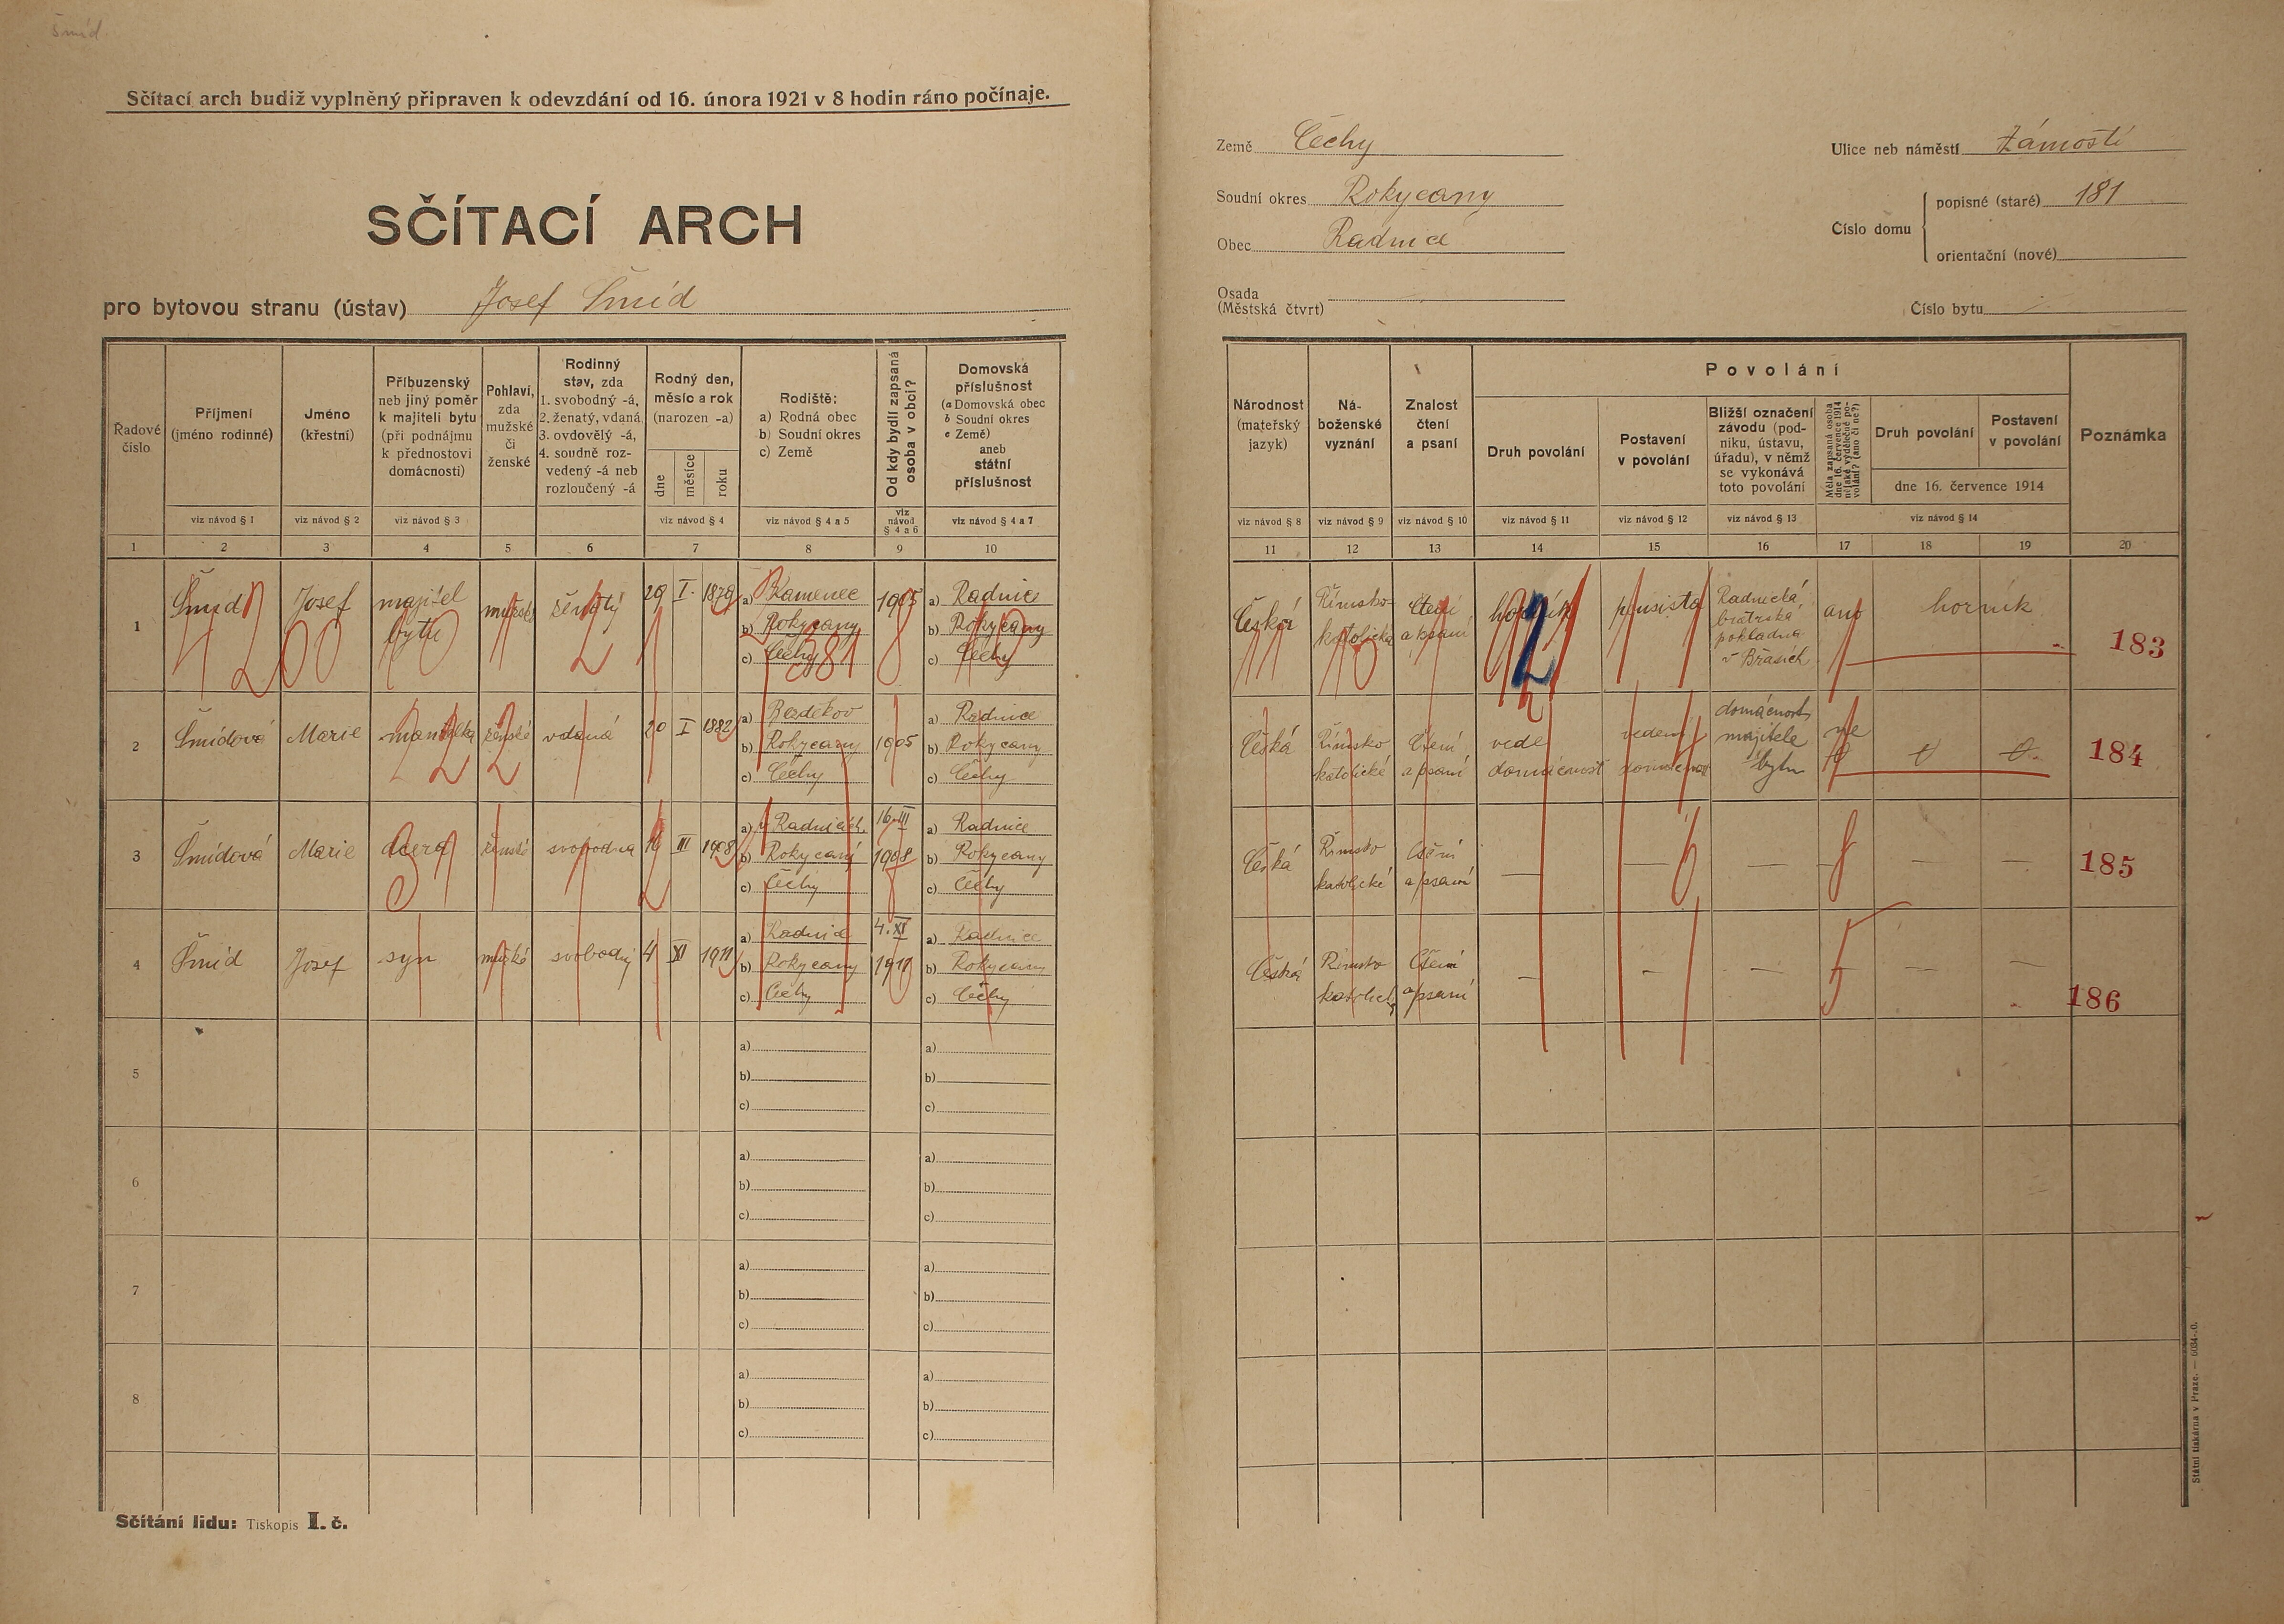 Šmíd
Sčítací arch budiž vyplněný připraven k odevzdání od 16. února 1921 v 8 hodin ráno počínaje.
SČÍTACÍ ARCH
pro bytovou stranu (ústav) Josef Šmíd
Země Čechy
Soudní okres Rokycany
Obec Radnice
Osada
(Městská čtvrt)
Ulice neb náměstí Zámostí
Číslo domu
popisné (staré) 181
orientační (nové)
Číslo bytu
Řadové číslo
Příjmení (jméno rodinné)
Jméno (křestní)
Příbuzenský neb jiný poměr k majiteli bytu (při podnájmu k přednostovi domácnosti)
Pohlaví, zda mužské či ženské
Rodinný stav, zda 1. svobodný -á, 2. ženatý, vdaná 3. ovdovělý -á, 4. soudně rozvedený -á neb rozloučený -á
Rodný den, měsíc a rok (narozen -a)
dne měsíce roku
Rodiště: a) Rodná obec b) Soudní okres c) Země
Od kdy bydlí zapsaná osoba v obci?
Domovská příslušnost (a Domovská obec b Soudní okres c Země) aneb státní příslušnost
viz návod § 1 viz návod § 2 viz návod § 3 viz návod § 4 viz návod § 4 a 5 viz návod § 4 a 6 viz návod § 4 a 7
1 2 3 4 5 6 7 8 9 10
Národnost (mateřský jazyk)
Náboženské vyznání
Znalost čtení a psaní
Povolání
Druh povolání
Postavení v povolání
Bližší označení závodu (podniku, ústavu, úřadu), v němž se vykonává toto povolání
Měla zapsaná osoba dne 16. července 1914 nějaké výdělečné povolání? (ano či ne?)
Druh povolání
Postavení v povolání
dne 16. července 1914
Poznámka
viz návod § 8 viz návod § 9 viz návod § 10 viz návod § 11 viz návod § 12 viz návod § 13 viz návod § 14
11 12 13 14 15 16 17 18 19 20
1 Šmíd Josef majitel bytu mužské ženatý 29 I. 1879 a) Kamenec b) Rokycany c) Čechy 1905 a) Radnice b) Rokycany c) Čechy
Česká Římsko-katolické čtení a psaní horník pensista Radnická bratrská pokladna v Břasích ano horník 183
2 Šmídová Marie manželka ženské vdaná 20 I 1882 a) Bezděkov b) Rokycany c) Čechy 1905 a) Radnice b) Rokycany c) Čechy
Česká Římsko katolické čtení a psaní vede domácnost vedení domácnosti domácnost majitele bytu ne 0 0 184
3 Šmídová Marie dcera ženské svobodna 16 III 1908 a) v Radnicích b) Rokycany c) Čechy 16. III 1908 a) Radnice b) Rokycany c) Čechy
Česká Římsko katolické čtení a psaní — — — — — 185
4 Šmíd Josef syn mužské svobodný 4 XI 1911 a) Radnice b) Rokycany c) Čechy 4. XI 1911 a) Radnice b) Rokycany c) Čechy
Česká Římsko katolické čtení a psaní — — — — — 186
5 a) b) c) a) b) c)
6 a) b) c) a) b) c)
7 a) b) c) a) b) c)
8 a) b) c) a) b) c)
Sčítání lidu: Tiskopis I. č.
Státní tiskárna v Praze.